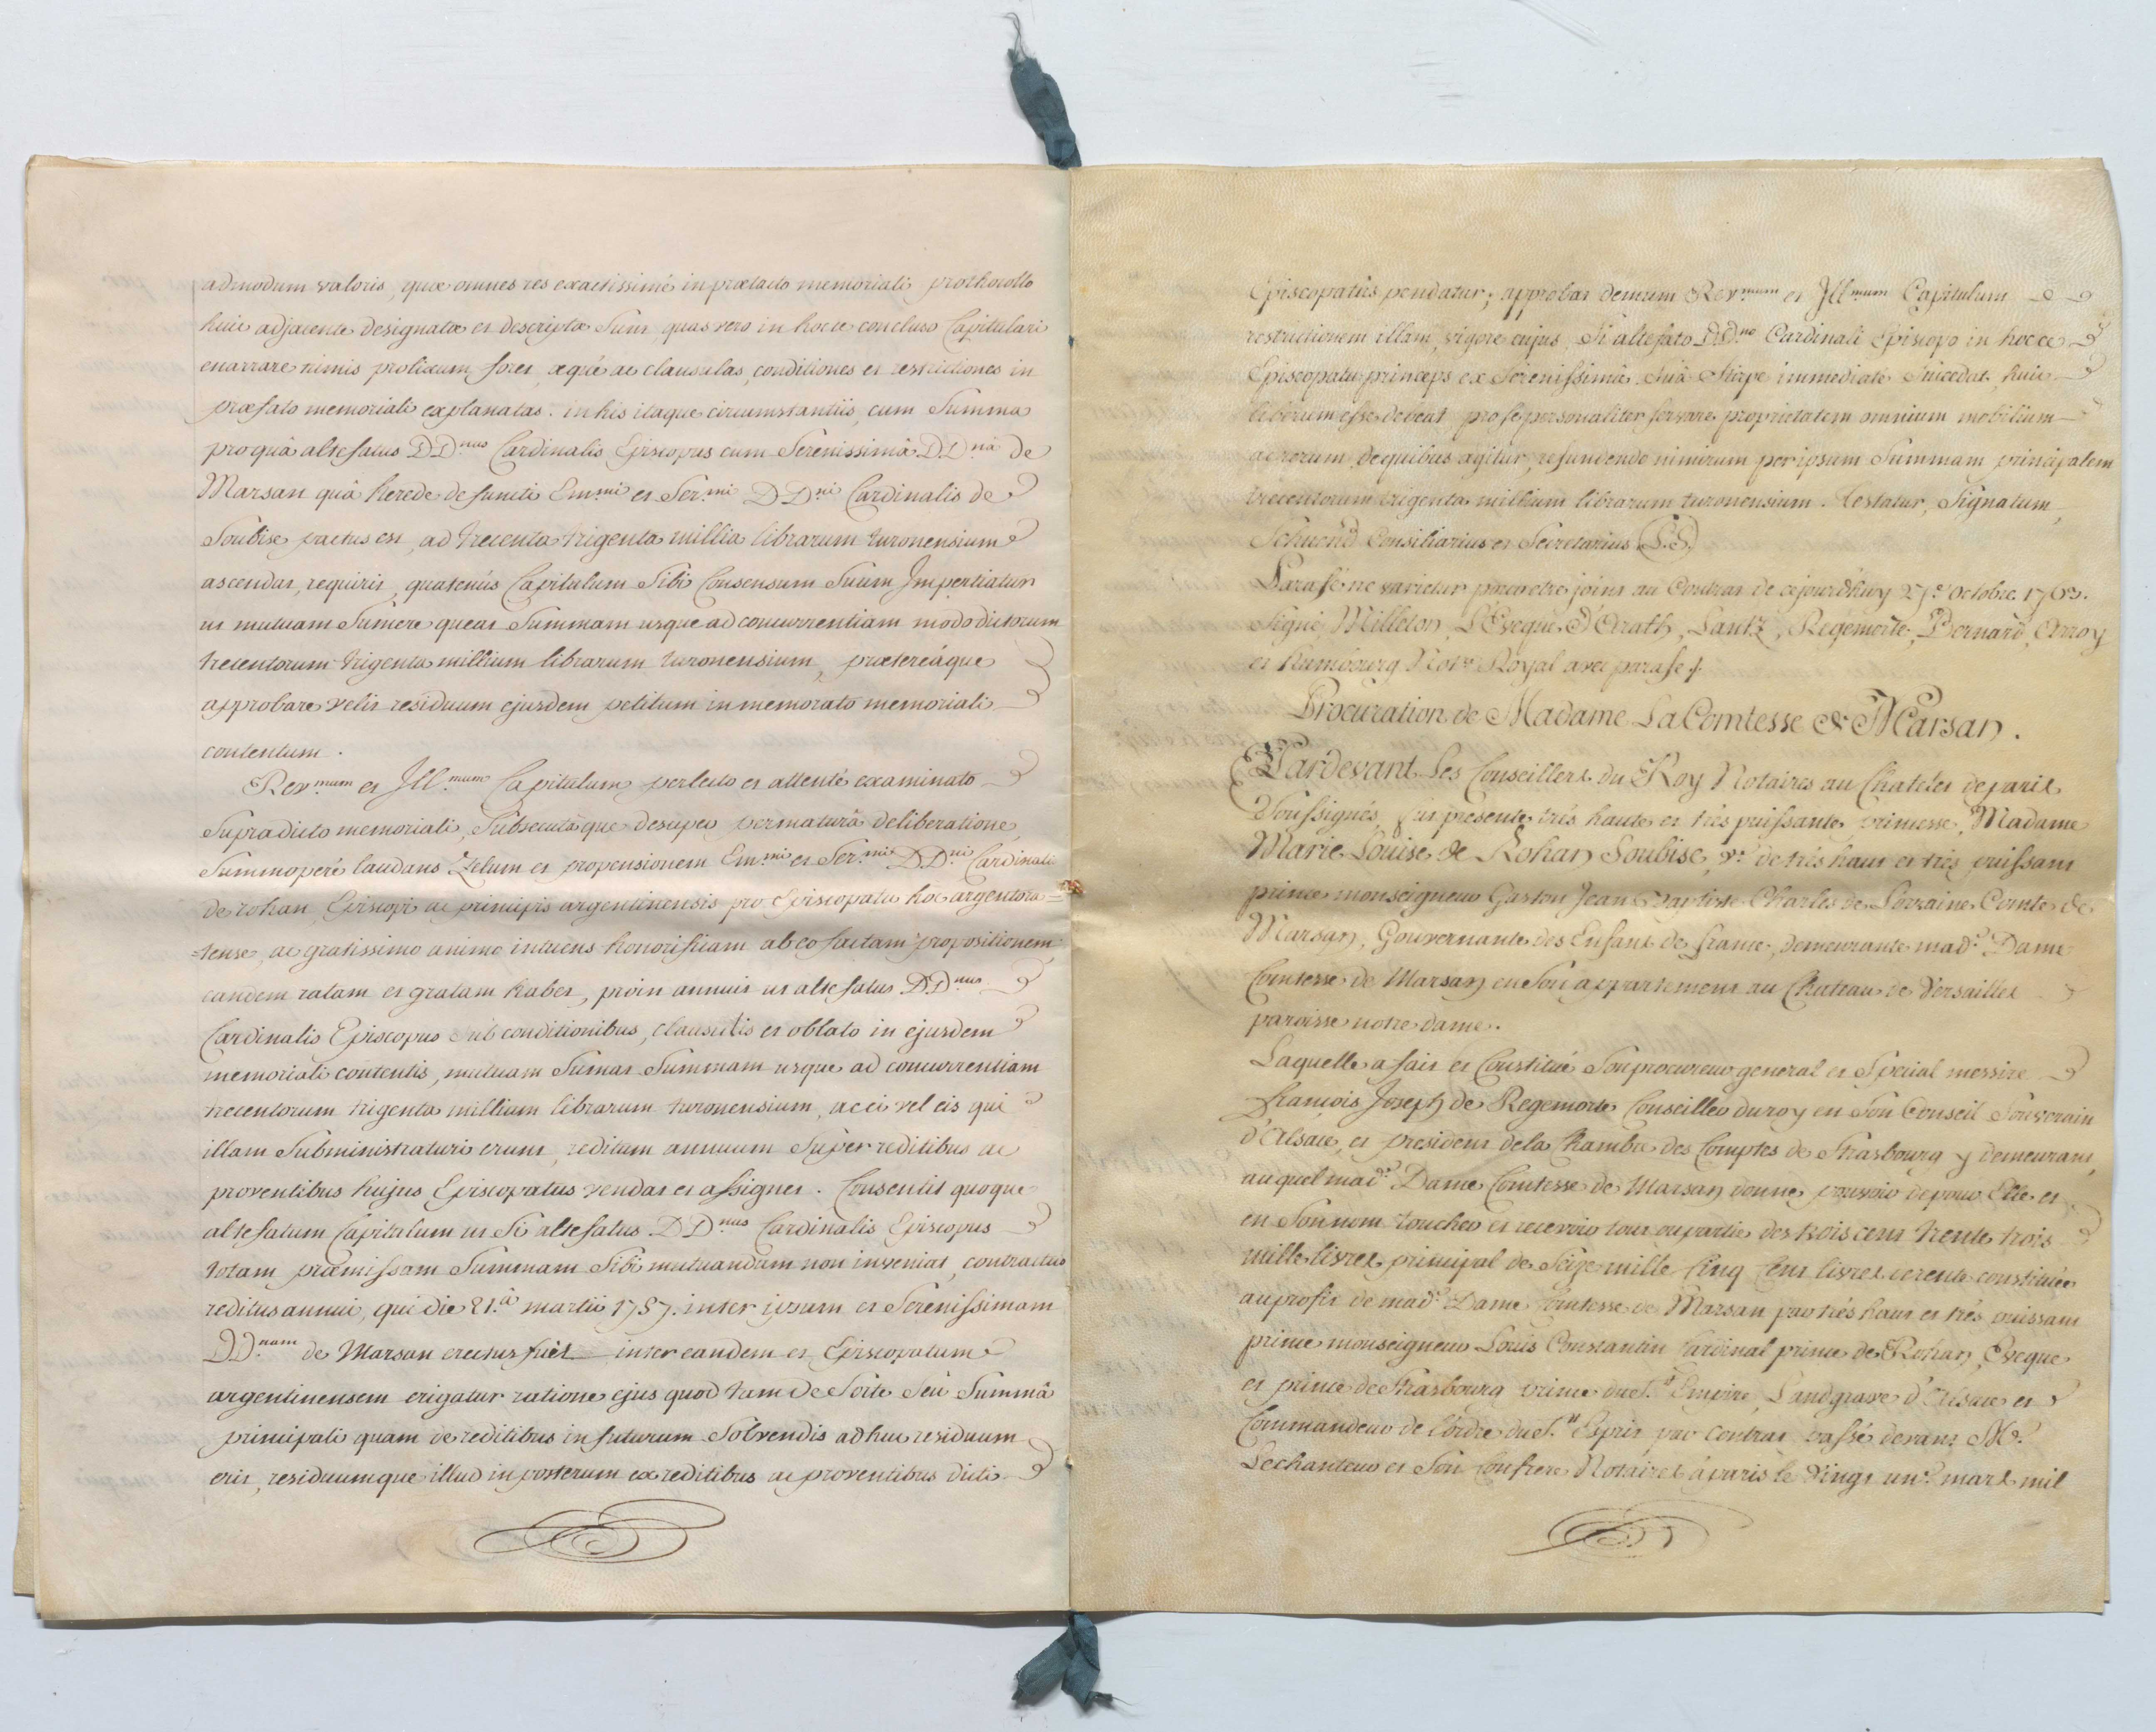 admodum valoris, quæ omnes res exactissimé in prætacto memoriali prothocollo
huic adjacente designatæ et descriptæ sunt, quas vero in hocce concluso Capitulari
enarrare nimis prolixum foret, æqué ac clausulas, conditiones et restrictiones in
præfato memoriali explanatas. in his itaque circumstantiis, cum Summa
pro quâ altefatus DD.nus Cardinalis Episcopus cum Serenissimâ DD.nâ de
Marsan quâ herede defuncti Em.mi et Ser.mi DD.ni Cardinalis de
Soubise pactus est, ad trecenta trigenta millia librarum turonensium
ascendat, requirit, quatenús Capitulum Sibi Consensum Suum Impertiatur
ut mutuam Sumere queat Summam usque ad concurrentiam modo dictorum
trecentorum trigenta millium librarum turonensium, prætereáque
approbare velit residuum ejusdem petitum in memorato memoriali
contentum.
Rev.mum et Ill.mum Capitulum perlecto et attenté examinato
Supradicto memoriali, Subsecutâque desuper permaturâ deliberatione,
Summoperé laudans Zelum et propensionem Em.mi et Ser.mi DD.ni Cardinali
de rohan Episcopi ac principis argentinensis pro Episcopatu hoc argentora=
=tense, ac gratissimo animo intuens honorificam ab eo factam propositionem
eandem ratam et gratam habet, proin annuit ut altefatus DD.nus
Cardinalis Episcopus sub conditionibus, clausulis et oblato in ejusdem
memoriali contentis, mutuam Sumat Summam usque ad concurrentiam
trecentorum trigenta millium librarum turonensium, ac ei vel eis qui
illam Subministraturi erunt, reditum annuum Super reditibus ac
proventibus hujus Episcopatus vendat et assignet. Consentit quoque
altefatum Capitulum ut Si altefatus DD.nus Cardinalis Episcopus
totam præmissam Summam Sibi mutuandum non inveniat, contractus
reditus annui, qui die 21.â martii 1757. inter ipsum et Serenissimam
DD.nam de Marsan erectus fuit inter eandem et Episcopatum
argentinensem erigatur ratione ejus quod tam de Sorte Seu Summâ
principali quam de reditibus in futurum Solvendis adhuc residuum
erit, residuumque illud in posterum ex reditibus ac proventibus dicti
Episcopatûs pendatur; approbat demum Rev.mum et Ill.mum Capitulum
restrictionem illam, vigore cujus, Si altefato DD.no Cardinali Episcopo in hocce
Episcopatu princeps ex Serenissimâ Suâ Stirpe immediaté Succedat huic
liberum esse debeat pro se personaliter servare proprietatem omnium mobilium
ac rerum de quibus agitur, refundendo nimirum per ipsum Summam principalem
trecentorum trigenta millium librarum turonensium. testatur, Signatum,
Consiliarius et Secretarius (L.S.)
Parafé ne varietur pour etre joint au Contrat de cejourd'huy 27.e octobre 1763.
Signé, Millelon, L'Eveque d'Arath, Lantz, Regemorte, Bernard, Arroy
et Humbourg Not.re Royal avec parafe ./.
Procuration de Madame La Comtesse de Marsan.
Pardevant Les Conseillers du Roy Notaires au Chatelet de paris
Soussignés, fut presente trés haute et trés puissante princesse, Madame
Marie Louise de Rohan Soubise, v.e de trés haut et trés puissant
prince monseigneur Gaston Jean Baptiste Charles de Lorraine Comte de
Marsan, Gouvernante des Enfans de france, demeurante mad.e Dame
Comtesse de Marsan en Son appartement au Chateau de Versailles
paroisse notre dame.
Laquelle a fait et Constitué Son procureur general et Special messire
François Joseph de Regemorte Conseiller du roy en Son Conseil Souverain
d'Alsace, et president de la Chambre des Comptes de Strasbourg y demeurant,
auquel mad.e Dame Comtesse de Marsan donne pouvoir de pour Elle et
en Son nom toucher et recevoir tout ou partie des trois cent trente trois
mille livres principal de Seize mille Cinq Cens livres de rente constituée
au profit de mad.e Dame Comtesse de Marsan par trés haut et trés puissant
prince monseigneur Louis Constantin Cardinal prince de Rohan, Eveque
et prince de Strasbourg prince du S.t Empire, Landgrave d'Alsace et
Commandeur de l'ordre du S.t Esprit par Contrat passé devant M.e
Lechanteur et Son Confrere Notaires á paris le Vingt un.e mars mil